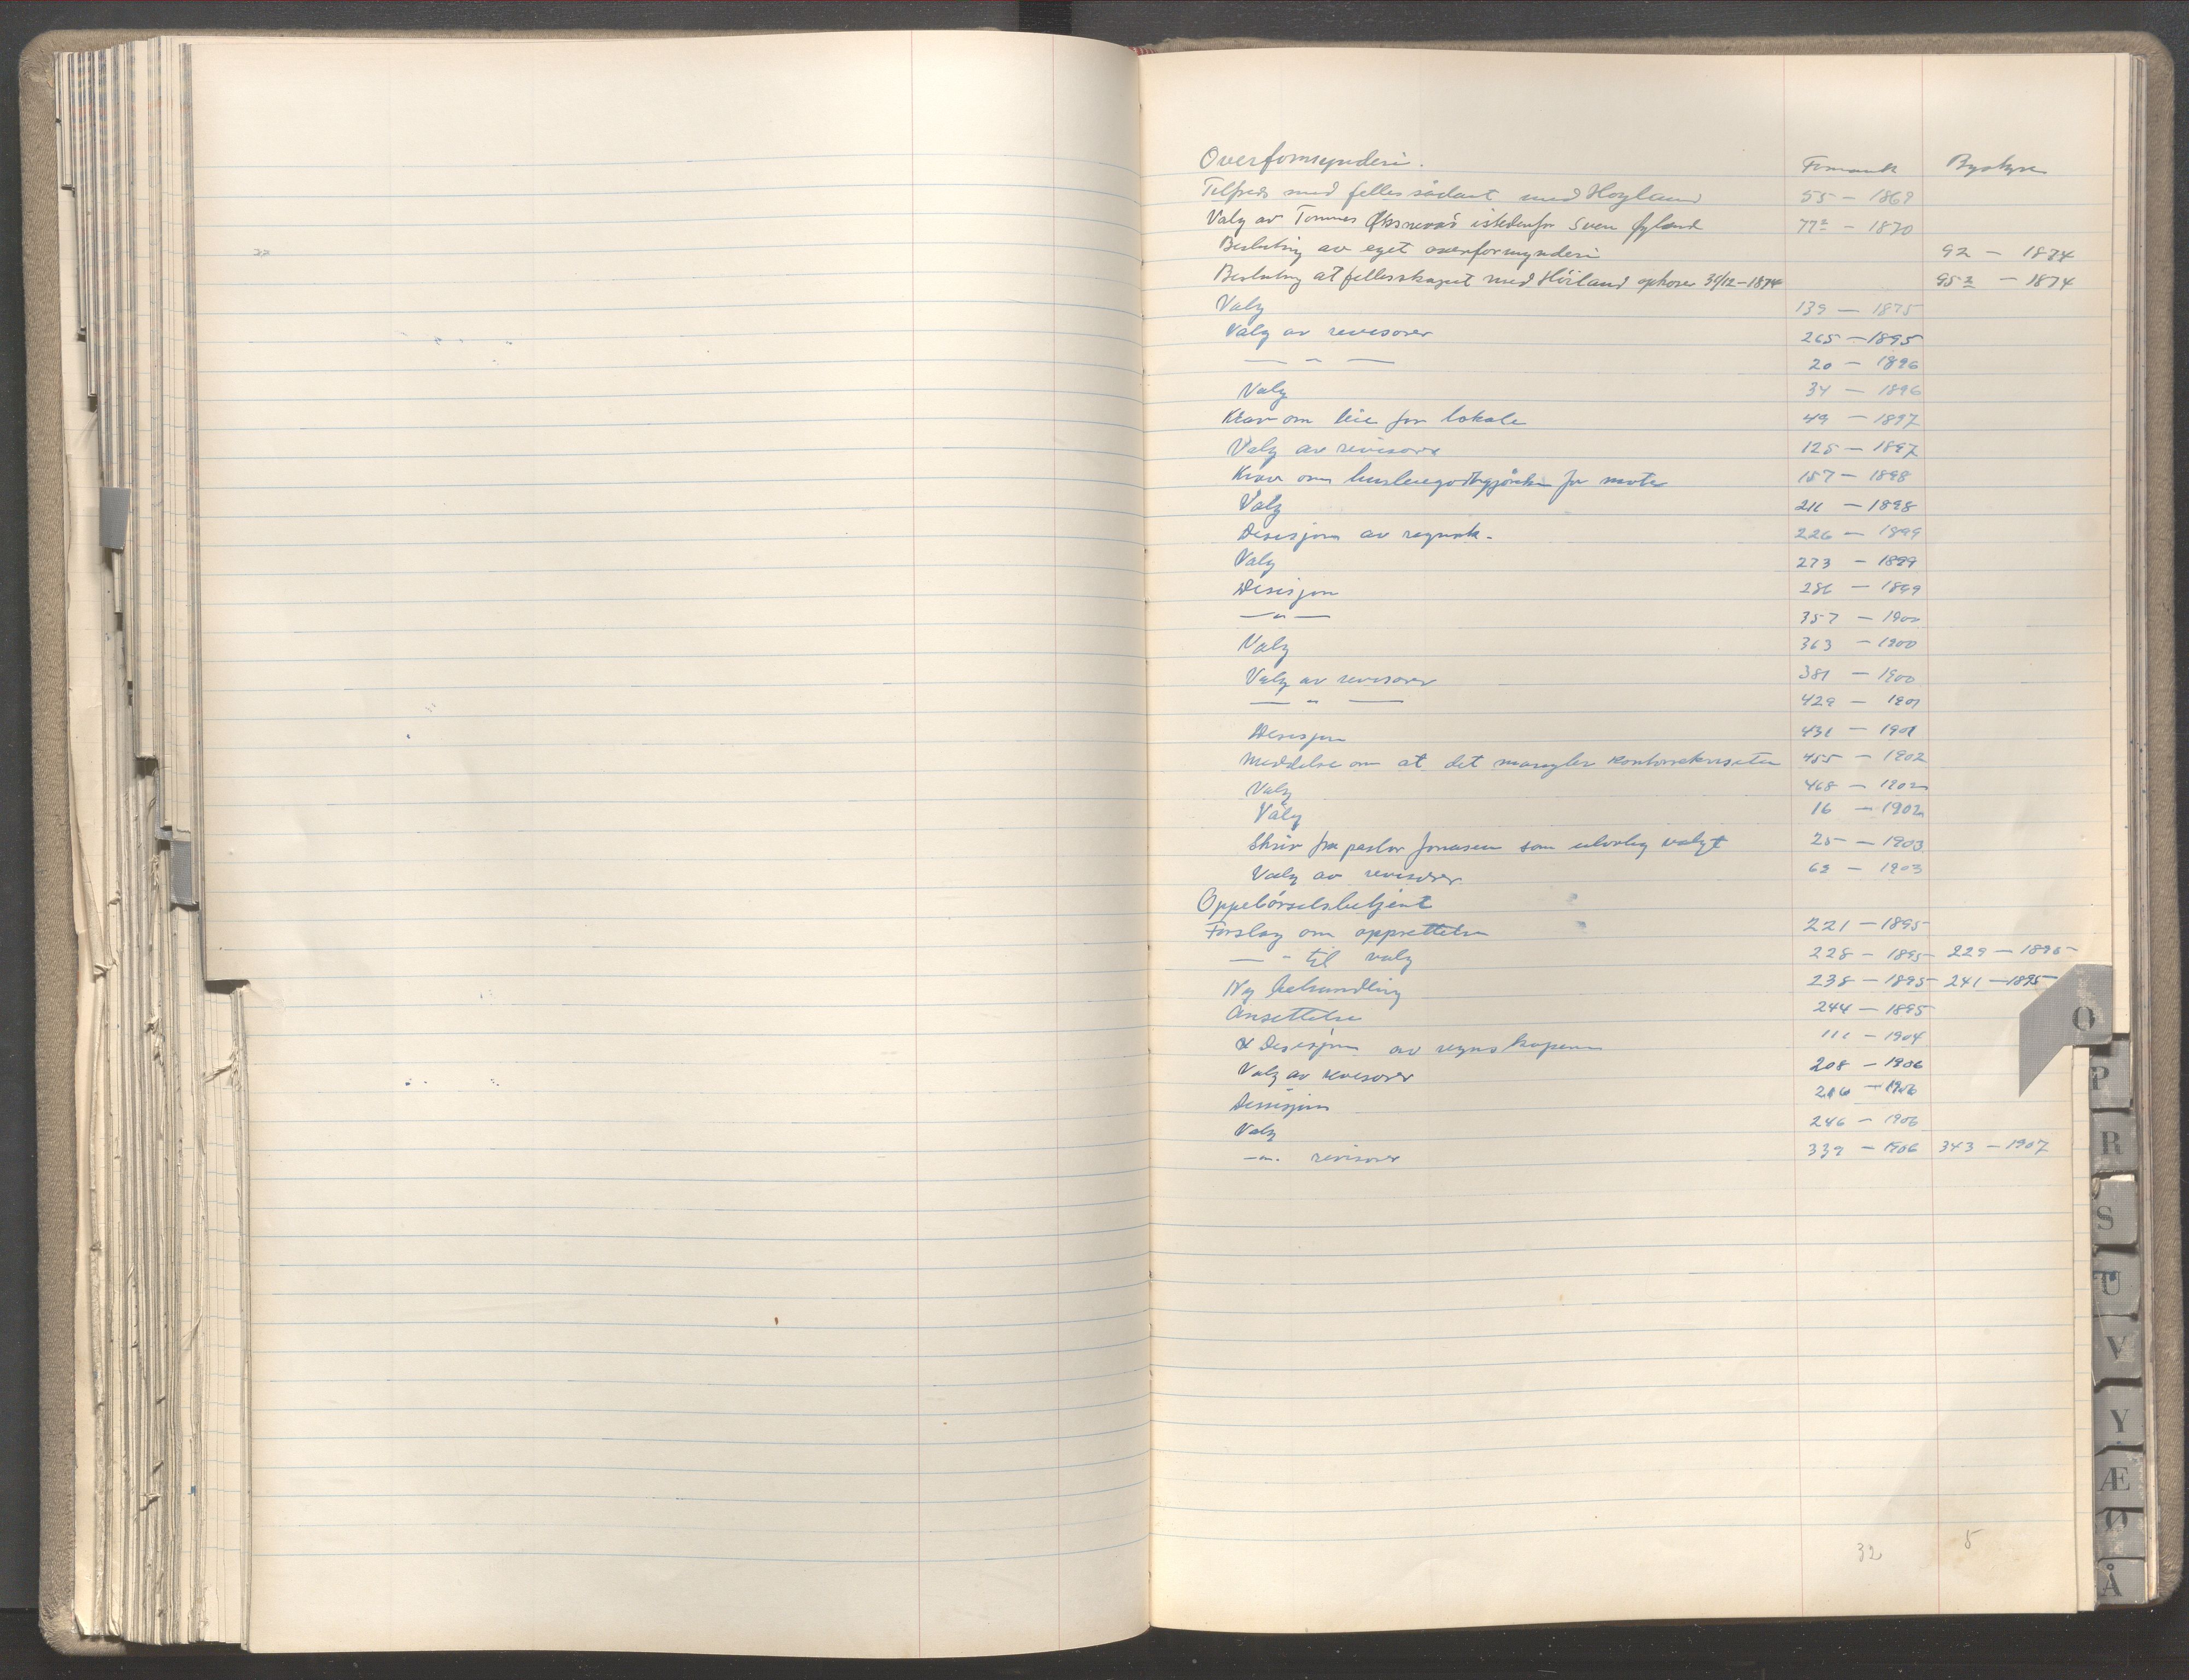 Overformynderi. Formannsk Bystyre
Tilfreds med felles sådant med Høyland 55 – 1869
Valg av Tommes Øksnevad istedenfor Sven Øyland 77² – 1870
Beslutning av eget overformynderi 92 – 1874
Beslutning at fellesskapet med Höiland ophorer 31/12–1874 95² – 1874
Valg 139 – 1875
Valg av revisorer 265 – 1895
— " — 20 – 1896
Valg 34 – 1896
Krav om leie for lokale 49 – 1897
Valg av revisorer 125 – 1897
Krav om husleiegodtgjörelse for møter 157 – 1898
Valg 211 – 1898
Desisjon av regnsk. 226 – 1899
Valg 273 – 1899
Desisjon 286 – 1899
— " — 357 – 1900
Valg 363 – 1900
Valg av revisorer 381 – 1900
— " — 429 – 1901
Desisjon 431 – 1901
Meddelse om at det mangler kontorrekvisiter 455 – 1902
Valg 468 – 1902
Valg 16 – 1902
Skriv fra pastor Jonassen som ulovlig valgt 25 – 1903
Valg av revisorer 62 – 1903
Oppebörselsbetjent
Forslag om opprettelse 221 – 1895
— " til valg 228 – 1895 229 – 1895
Ny behandling 238 – 1895 241 – 1895
Ansettelse 244 – 1895
Desisjon av regnskapene 111 – 1904
Valg av revisorer 208 – 1906
Desisjon 216 – 1906
Valg 246 – 1906
—"— revisorer 339 – 1906 343 – 1907
32 5
O
P
R
S
T
U
V
Y
Æ
Ø
Å